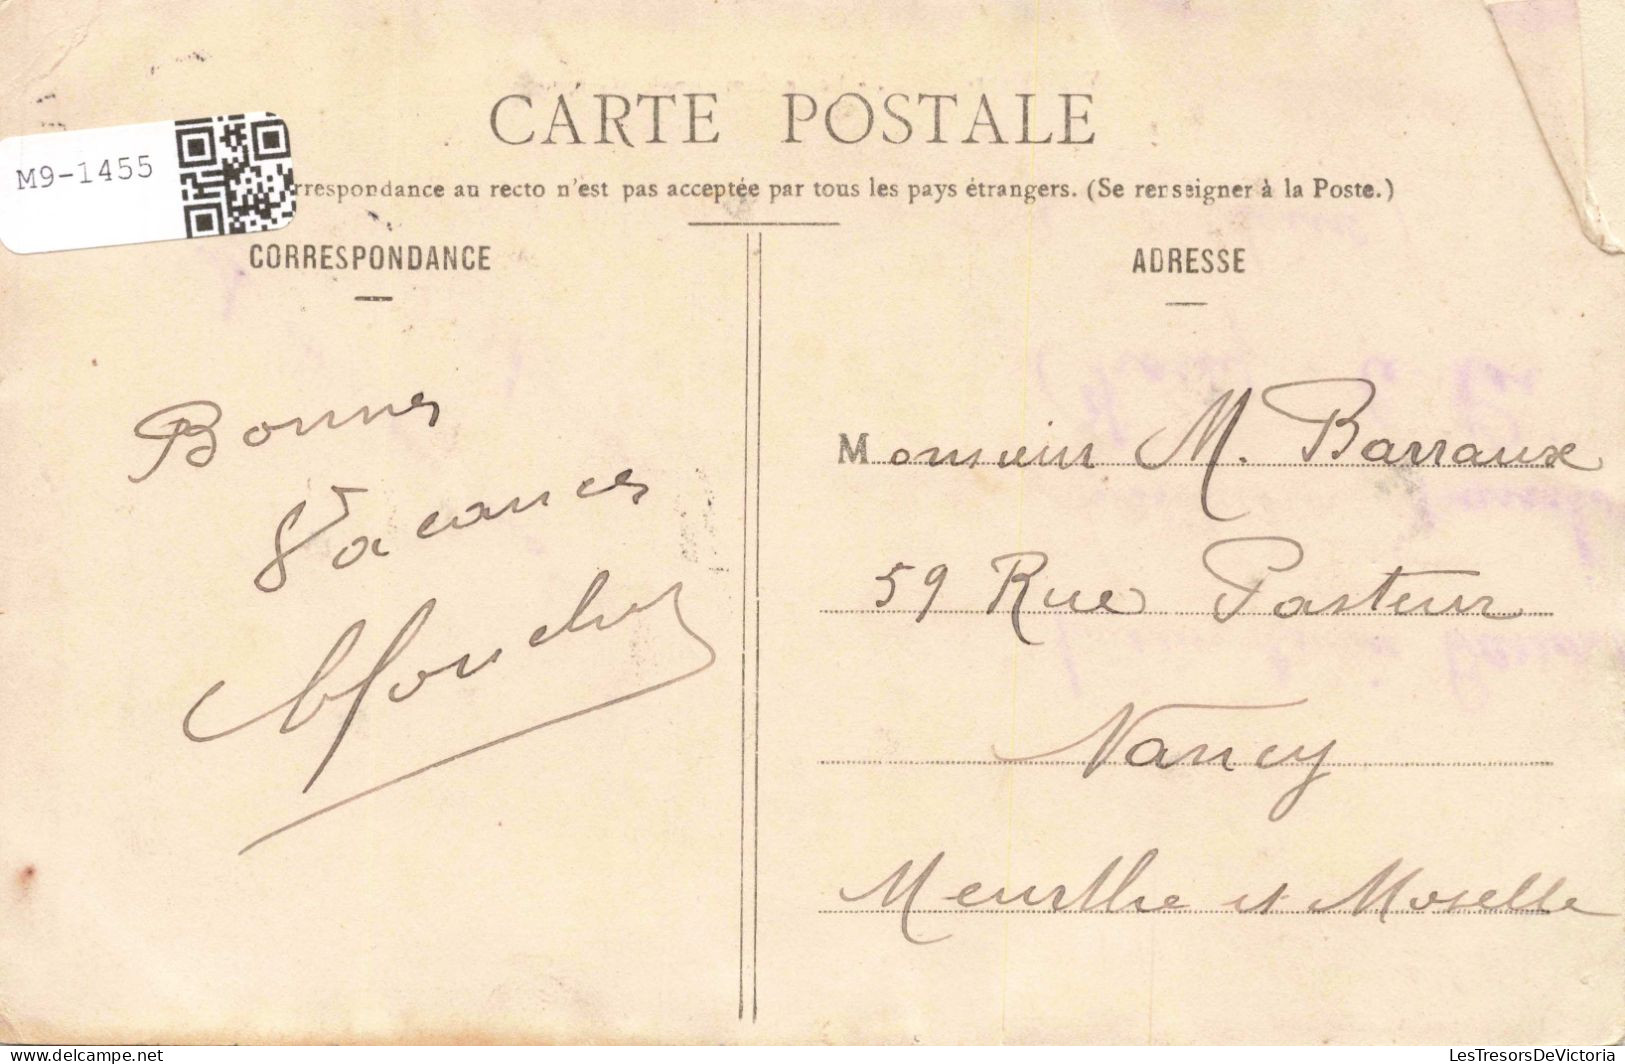 CARTE POSTALE
M9-1455
rrespondance au recto n'est pas acceptée par tous les pays étrangers. (Se renseigner à la Poste.)
CORRESPONDANCE
ADRESSE
Bonnes
Vacances
Monsieur M. Barraux
59 Rue Pasteur
Nancy
Meurthe et Moselle
www.delcampe.net
LesTresorsDeVictoria